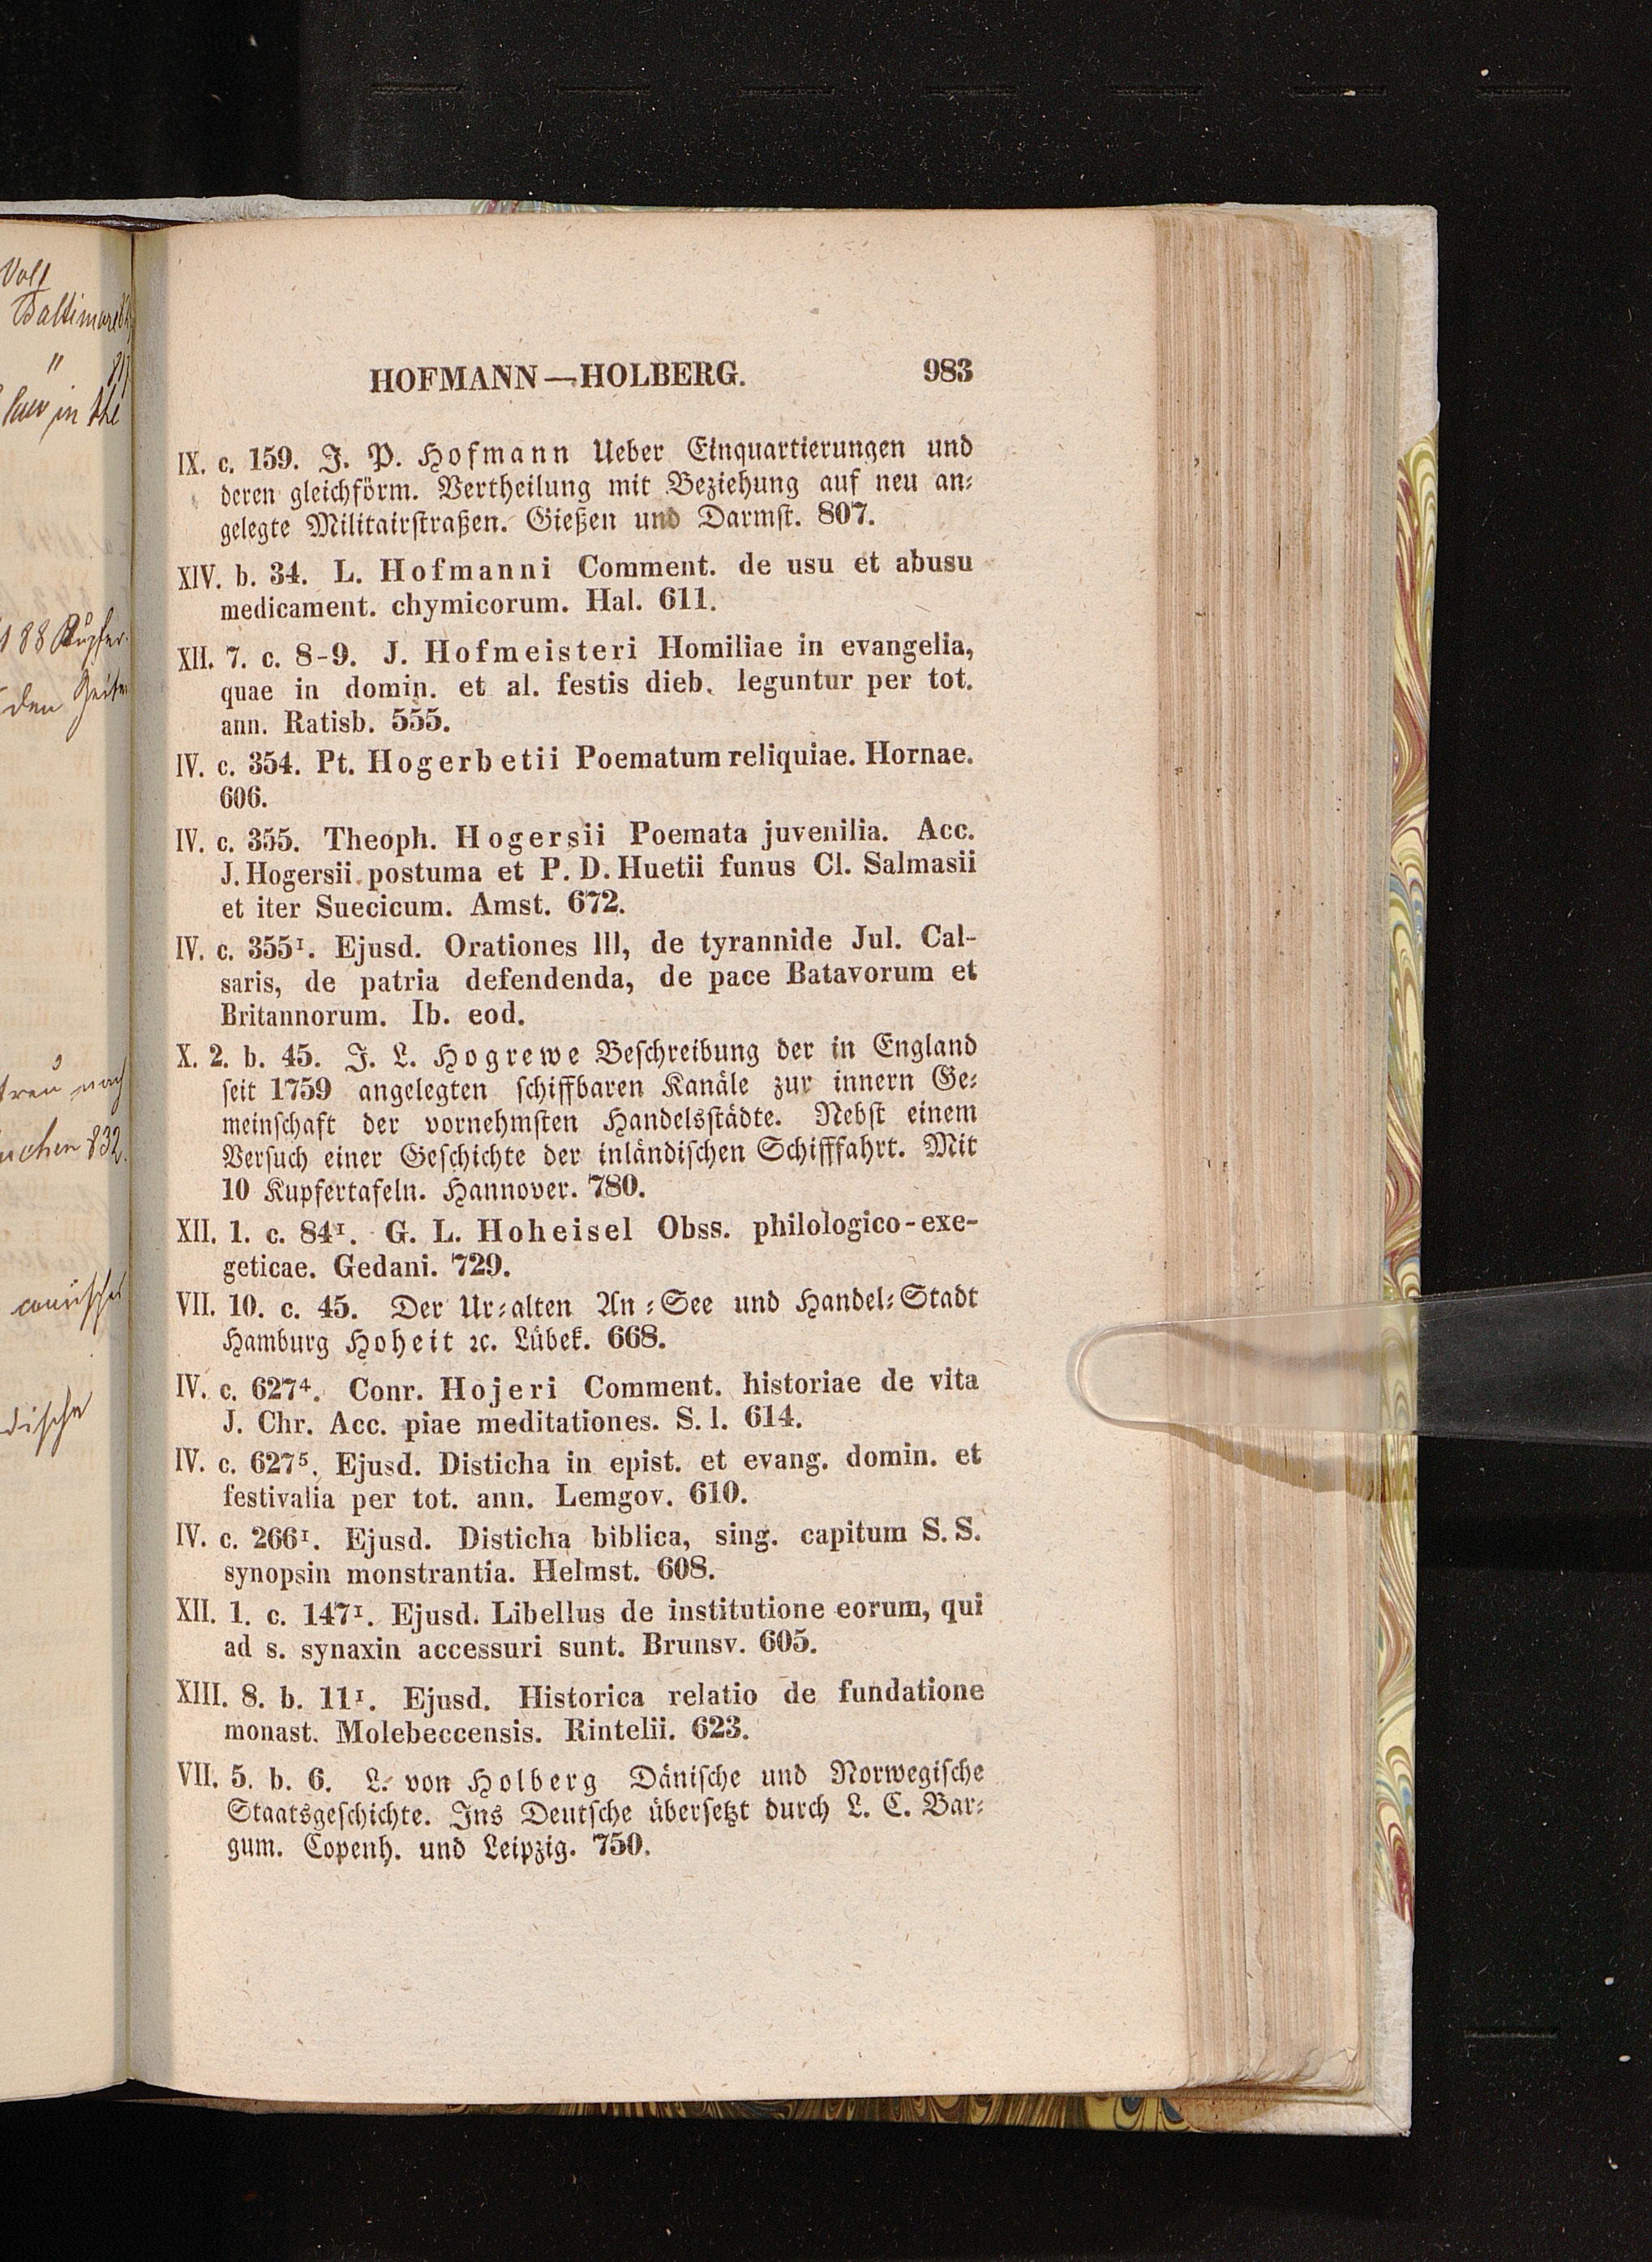 Baltimore
"
law in the
188 Kupfer
den
nach
832.
HOFMANN—HOLBERG. 983
IX. c. 159. J. P. Hofmann Ueber Einquartierungen und
deren gleichförm. Vertheilung mit Beziehung auf neu an⸗
gelegte Militairstraßen. Gießen und Darmst. 807.
XIV. b. 34. L. Hofmanni Comment. de usu et abusu
medicament. chymicorum. Hal. 611.
XII. 7. c. 8-9. J. Hofmeisteri Homiliae in evangelia,
quae in domin. et al. festis dieb. leguntur per tot.
ann. Ratisb. 555.
IV. c. 354. Pt. Hogerbetii Poematum reliquiae. Hornae.
606.
IV. c. 355. Theoph. Hogersii Poemata juvenilia. Acc.
J. Hogersii postuma et P. D. Huetii funus Cl. Salmasii
et iter Suecicum. Amst. 672.
IV. c. 355¹. Ejusd. Orationes III, de tyrannide Jul. Cal-
saris, de patria defendenda, de pace Batavorum et
Britannorum. Ib. eod.
X. 2. b. 45. J. L. Hogrewe Beschreibung der in England
seit 1759 angelegten schiffbaren Kanäle zur innern Ge⸗
meinschaft der vornehmsten Handelsstädte. Nebst einem
Versuch einer Geschichte der inländischen Schifffahrt. Mit
10 Kupfertafeln. Hannover. 780.
XII. 1. c. 84¹. G. L. Hoheisel Obss. philologico-exe-
geticae. Gedani. 729.
VII. 10. c. 45. Der Ur⸗alten An⸗See und Handel⸗Stadt
Hamburg Hoheit ꝛc. Lübek. 668.
IV. c. 627⁴. Conr. Hojeri Comment. historiae de vita
J. Chr. Acc. piae meditationes. S. l. 614.
IV. c. 627⁵. Ejusd. Disticha in epist. et evang. domin. et
festivalia per tot. ann. Lemgov. 610.
IV. c. 266¹. Ejusd. Disticha biblica, sing. capitum S. S.
synopsin monstrantia. Helmst. 608.
XII. 1. c. 147¹. Ejusd. Libellus de institutione eorum, qui
ad s. synaxin accessuri sunt. Brunsv. 605.
XIII. 8. b. 11¹. Ejusd. Historica relatio de fundatione
monast. Molebeccensis. Rintelii. 623.
VII. 5. b. 6. L. von Holberg Dänische und Norwegische
Staatsgeschichte. Ins Deutsche übersetzt durch L. C. Bar⸗
gum. Copenh. und Leipzig. 750.